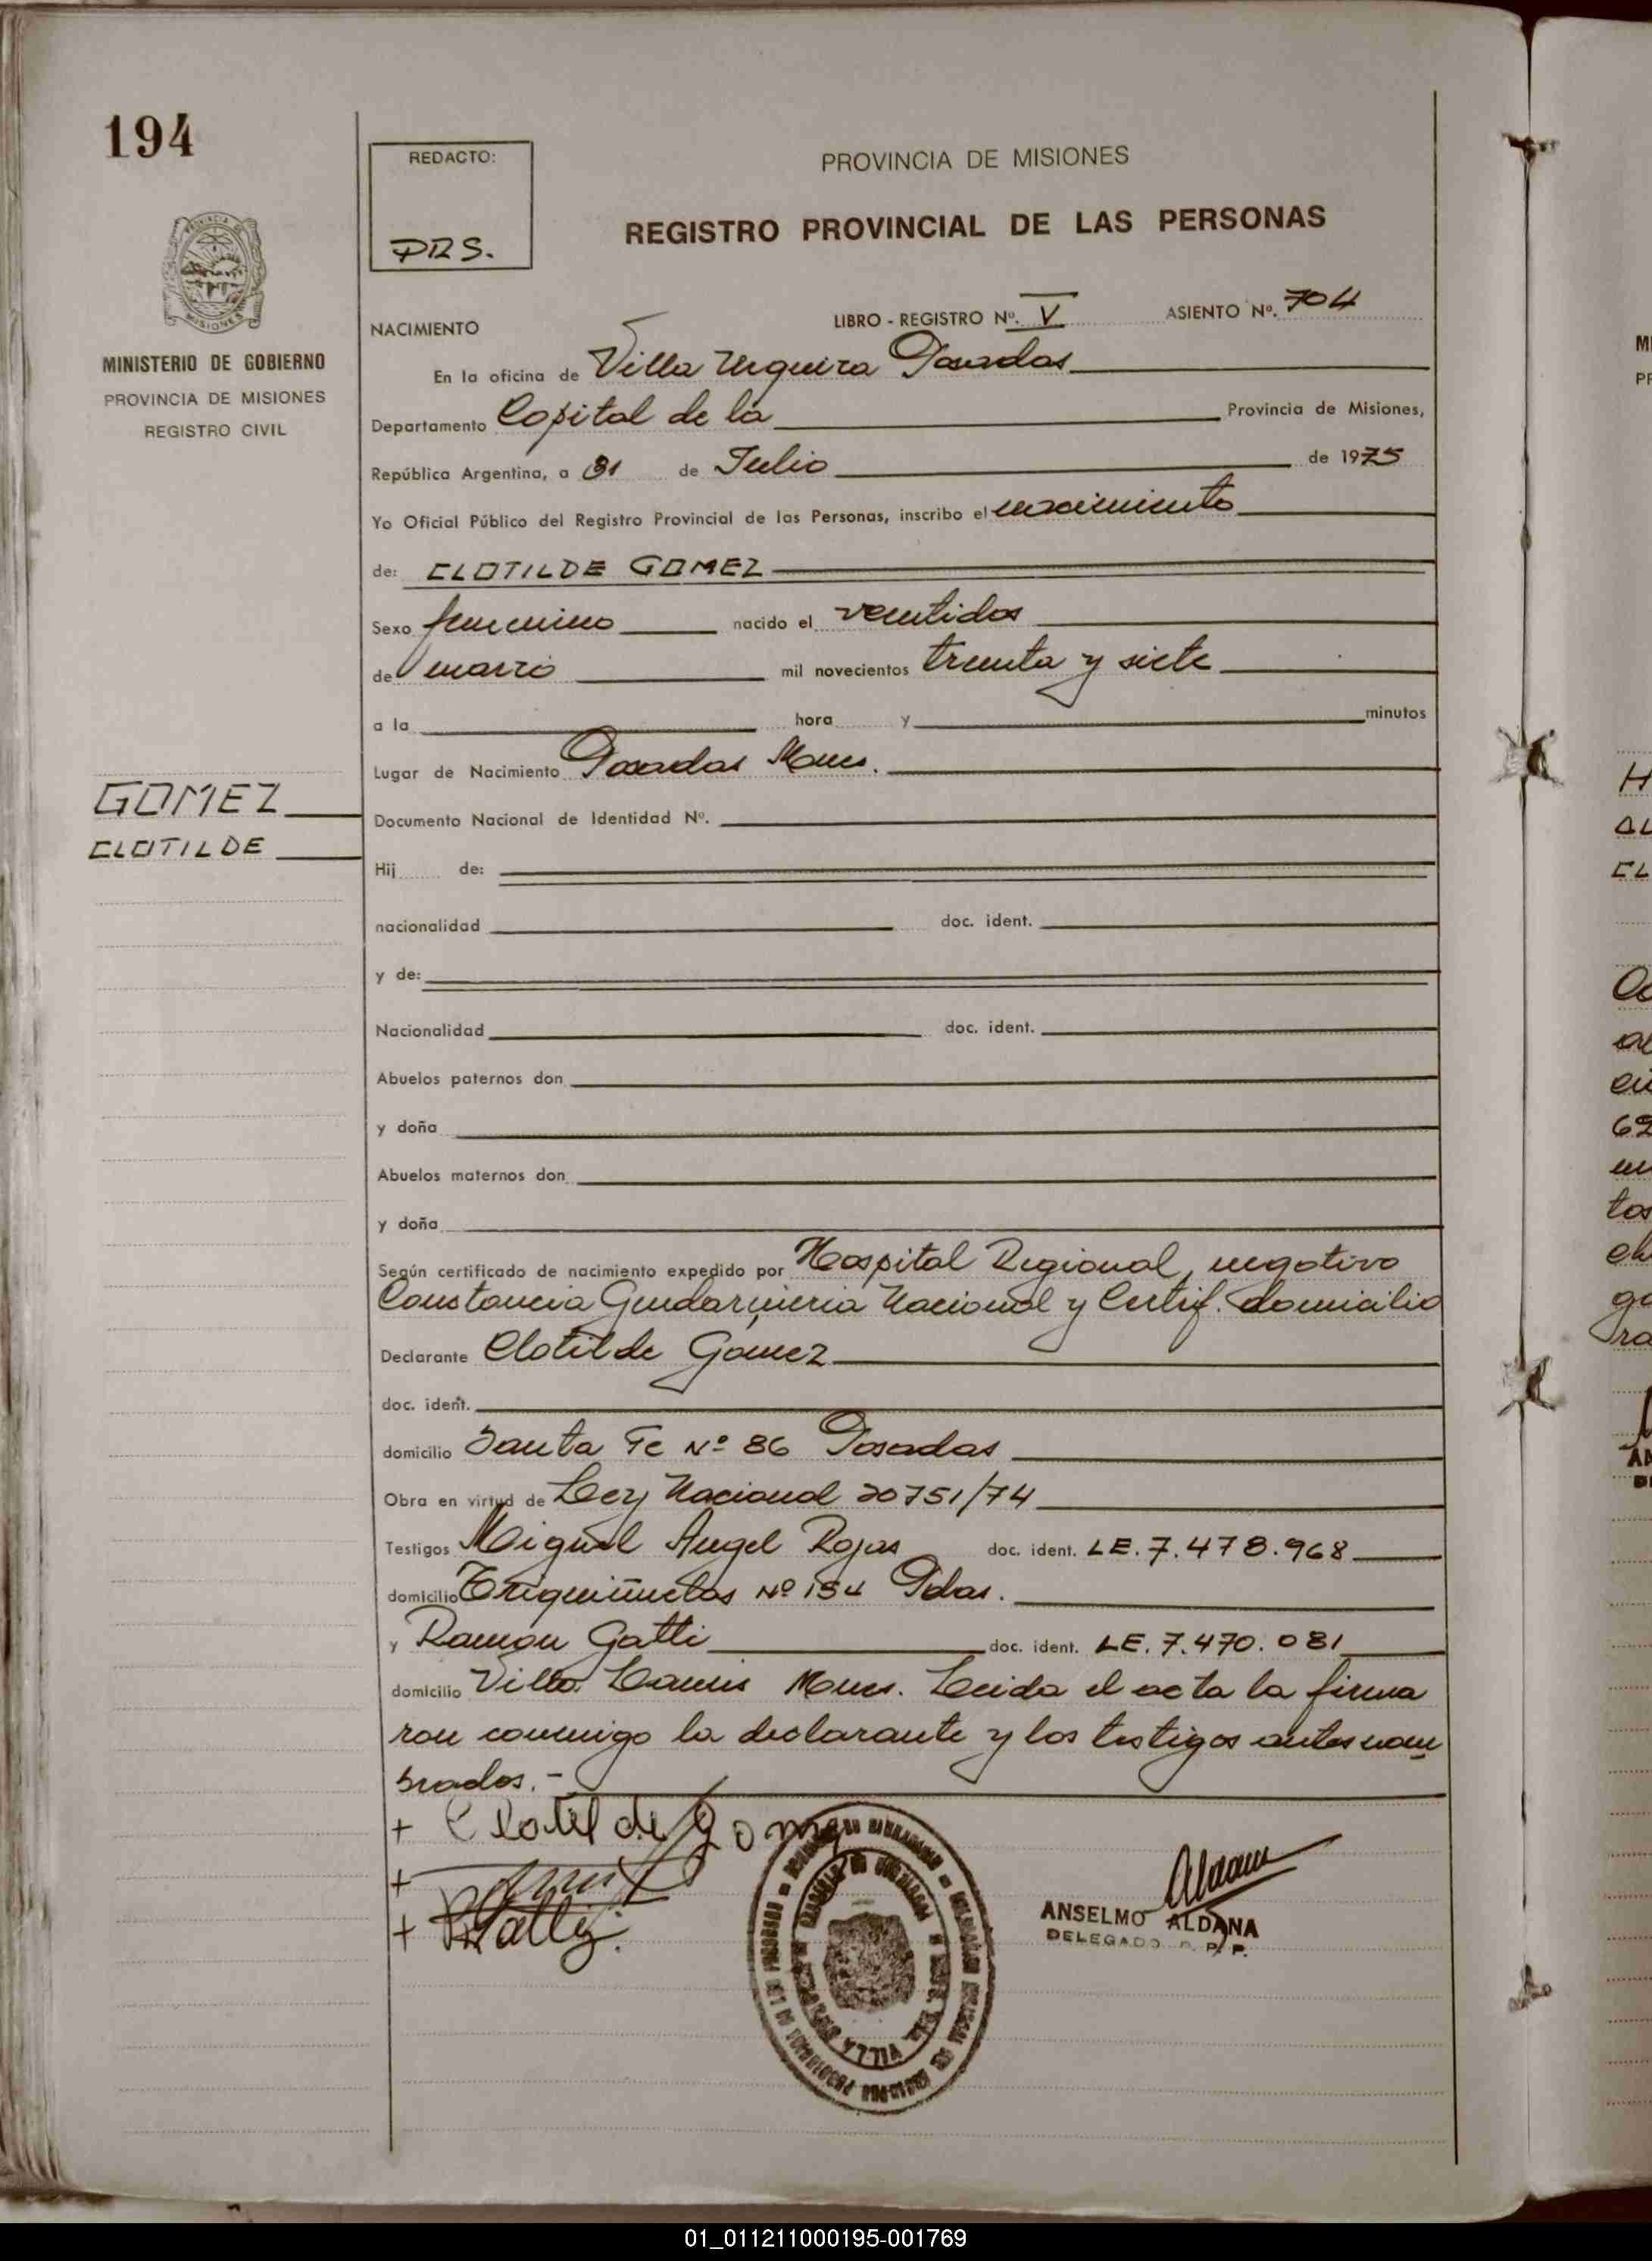 194
REDACTO:
PRS.
PROVINCIA DE MISIONES
REGISTRO PROVINCIAL DE LAS PERSONAS
MINISTERIO DE GOBIERNO
PROVINCIA DE MISIONES
REGISTRO CIVIL
NACIMIENTO LIBRO - REGISTRO Nº. V ASIENTO Nº. 704
En la oficina de Villa Urquiza Posadas
Departamento Capital de la Provincia de Misiones,
República Argentina, a 31 de Julio de 1975
Yo Oficial Público del Registro Provincial de las Personas, inscribo el nacimiento
de: CLOTILDE GOMEZ
Sexo femenino nacido el veintidos
de marzo mil novecientos treinta y siete
a la hora y minutos
Lugar de Nacimiento Posadas Mnes.
GOMEZ
CLOTILDE
Documento Nacional de Identidad Nº.
Hij de:
nacionalidad doc. ident.
y de:
Nacionalidad doc. ident.
Abuelos paternos don
y doña
Abuelos maternos don
y doña
Según certificado de nacimiento expedido por Hospital Regional, negativo
Constancia Gendarmeria Nacional y Certif. domicilio
Declarante Clotilde Gomez
doc. ident.
domicilio Santa Fe Nº 86 Posadas
Obra en virtud de Ley Nacional 20751/74
Testigos Miguel Angel Rojas doc. ident. LE. 7.478.968
domicilio Triquiñuelas Nº 154 Pdas.
y Ramon Gatti doc. ident. LE. 7.470.081
domicilio Villa Lanus Mnes. Leida el acta la firma
ron conmigo la declarante y los testigos antes nom
brados.-
+ Clotilde Gomez
+
+ RGatti
ANSELMO ALDANA
DELEGADO R. P. P.
VILLA
01_011211000195-001769